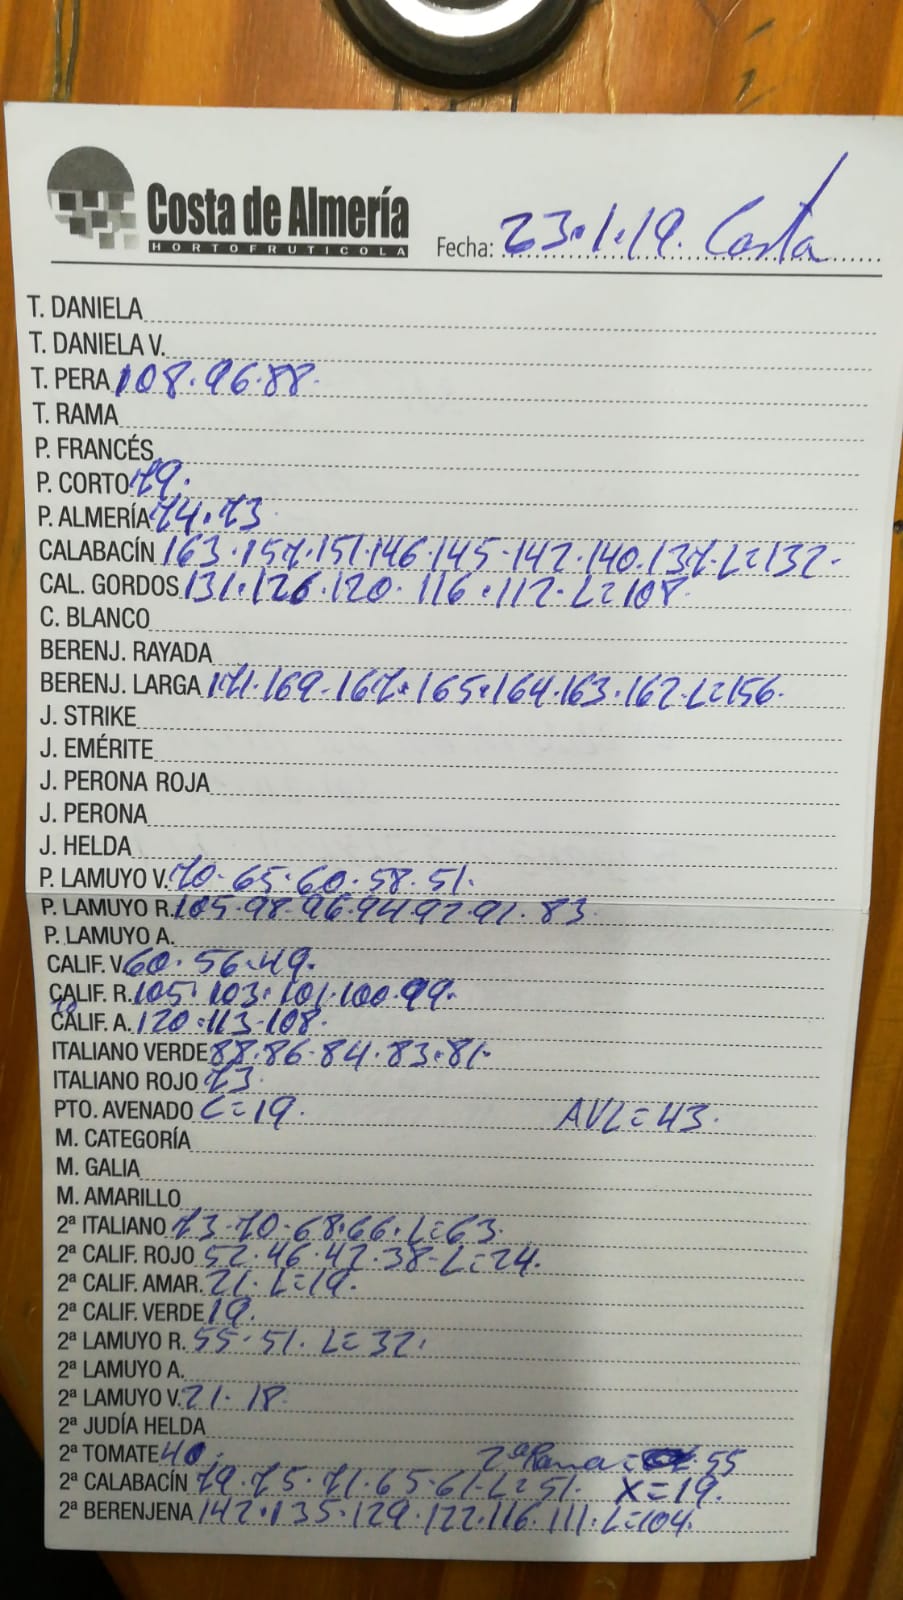 Costa de Almería
HORTOFRUTICOLA
Fecha: 23.1.19. Costa
T. DANIELA
T. DANIELA V.
T. PERA 108.96.88.
T. RAMA
P. FRANCÉS
P. CORTO 79.
P. ALMERÍA 74.73
CALABACÍN 163.157.151.146.145.142.140.137.L=132.
CAL. GORDOS 131.126.120.116.112.L=108.
C. BLANCO
BERENJ. RAYADA
BERENJ. LARGA 171.169.167.165.164.163.162.L=156.
J. STRIKE
J. EMÉRITE
J. PERONA ROJA
J. PERONA
J. HELDA
P. LAMUYO V. 70.65.60.58.51.
P. LAMUYO R. 105.98.96.94.92.91.83.
P. LAMUYO A.
CALIF. V. 60.56.49.
CALIF. R. 105.103.101.100.99.
CALIF. A. 120.113.108.
ITALIANO VERDE 88.86.84.83.81.
ITALIANO ROJO 73.
PTO. AVENADO C=19. AVL=43.
M. CATEGORÍA
M. GALIA
M. AMARILLO
2ª ITALIANO 73.70.68.66.L=63.
2ª CALIF. ROJO 52.46.42.38.L=24.
2ª CALIF. AMAR. 21.L=19.
2ª CALIF. VERDE 19.
2ª LAMUYO R. 55.51.L=32.
2ª LAMUYO A.
2ª LAMUYO V. 21.18.
2ª JUDÍA HELDA
2ª TOMATE 40. 2ª Rama= 55
2ª CALABACÍN 79.75.71.65.61.L=51. X=19.
2ª BERENJENA 142.135.129.122.116.111.L=104.